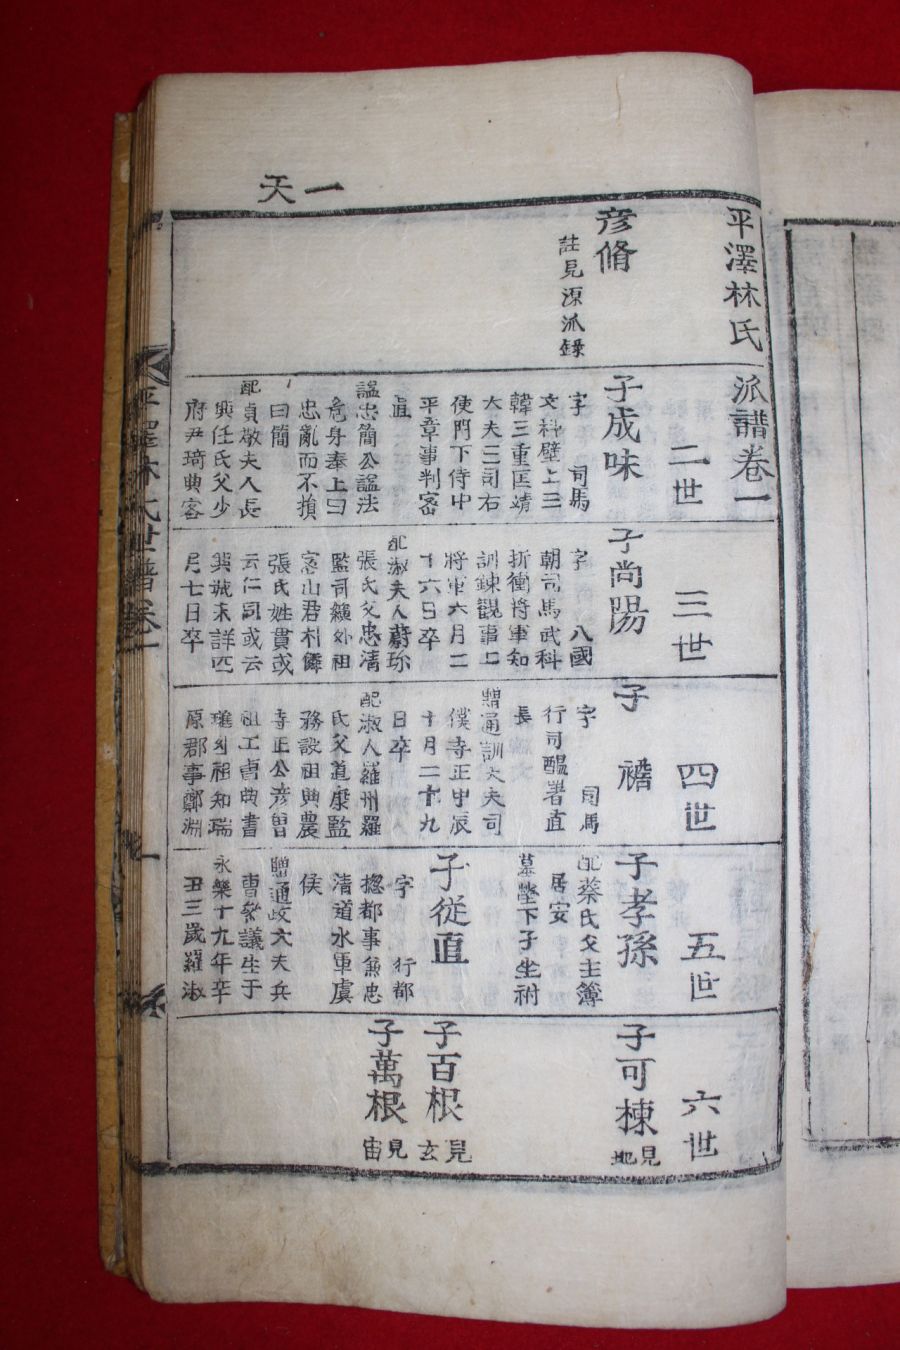 一天
平澤林氏派譜卷一
彦脩
註見源派録
二世
子成味
字　司馬
文科壁上三
韓三重匡靖
大夫三司右
使門下侍中
平章事判客
直
諡忠簡公諡法
危身奉上曰
忠亂而不損
曰簡
配貞敬夫人長
興任氏父少
府尹琦典客
三世
子尚陽
字　八國
朝司馬武科
折衝將軍知
訓鍊觀事上
將軍六月二
十六日卒
配淑夫人蔚珍
張氏父忠清
監司繼外祖
密山君朴儕
張氏姓貫或
云仁同或云
興城未詳四
月七日卒
四世
子襜
字　司馬
行司醞署直
長
贈通訓大夫司
僕寺正中辰
十月二十九
日卒
配淑人羅州羅
氏父道康監
務設祖典農
寺正公彦曾
祖工曹典書
璡外祖知瑞
原郡事鄭淵
五世
子孝孫
配蔡氏父主簿
居安
墓塋下子坐祔
子從直
字　行都
摠都事兼忠
清道水軍虞
侯
贈通政大夫兵
曹參議生于
永樂十九年辛
丑三歲羅淑
六世
子可棟　見地
子百根　見玄
子萬根　見宙
平澤林氏世譜卷一
一